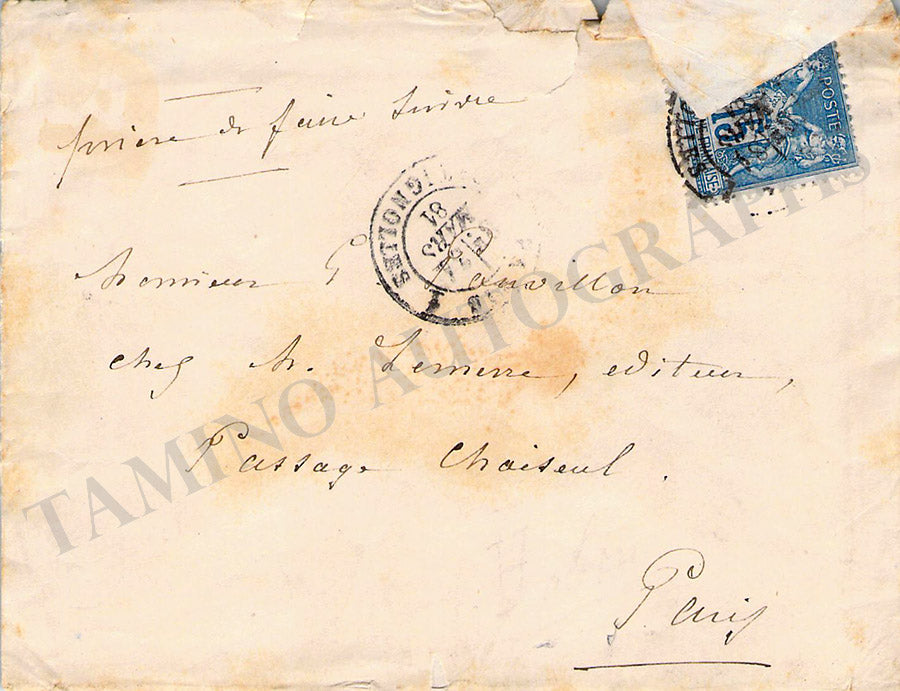 prière de faire suivre
Monsieur G. ouvillon
chez M. Lemerre, editeur,
Passage Choiseul.
Paris
BATIGNOLLES
MARS
81
POSTE
15
TAMINO AUTOGRAPHS